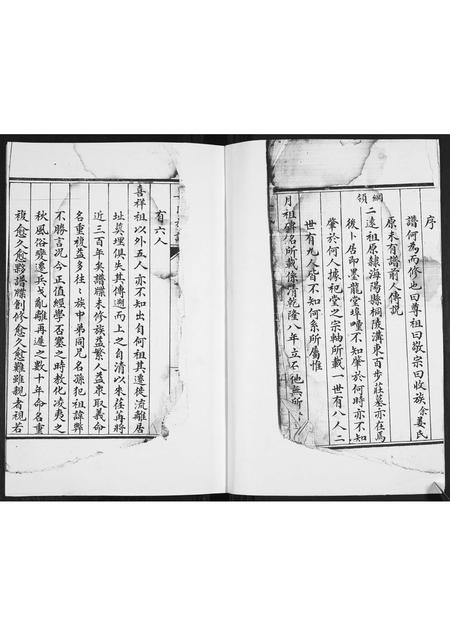 序
譜何為而修也曰尊祖曰敬宗曰收族余姜氏
原未有譜前人傳說
綱領
二遠祖原隸海陽縣桐陵溝東百步莊墓亦在焉
後卜居即墨龍堂埠嘴不知肇於何時亦不知
肇於何人據祀堂之宗軸所載一世有八人二
世有九人皆不知何系所屬惟
月祖碑名所載係清乾隆八年立不他無所
有六人
喜祥祖以外五人亦不知出自何祖其遷徙流離居
址莫埋俱失其傳遡而上之自清以來荏苒將
近三百年矣譜牒未修族益繁人益眾取義命
名重複益多往往族中弟同兄名孫犯祖諱弊
不勝言况今正值經學否塞之時教化凌夷之
秋風俗變遷兵戈亂離再遲之數十年命名重
複愈久愈夥譜牒創修愈久愈難雖親者視若